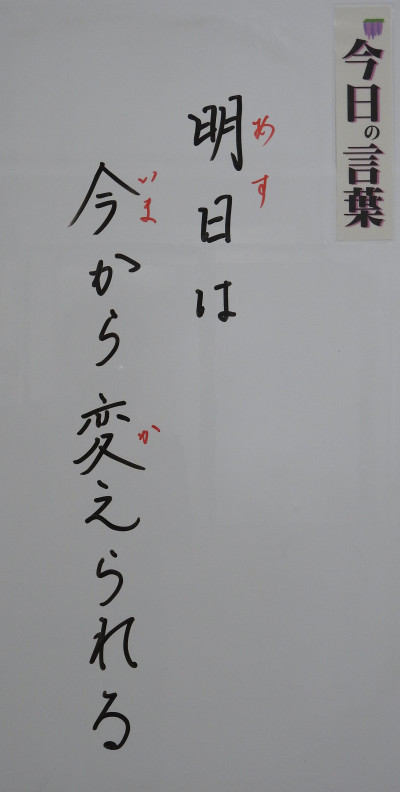 今日の言葉
明日は
あす
今から変えられる
いま
か